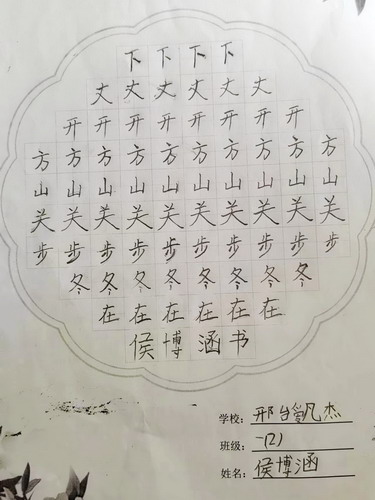 下下下下
丈丈丈丈丈丈
开开开开开开开开
方方方方方方方方方方
山山山山山山山山山山
关关关关关关关关关关
步步步步步步步步步步
冬冬冬冬冬冬冬冬
在在在在在在
侯博涵书
学校: 邢台凯杰
班级: 一(2)
姓名: 侯博涵